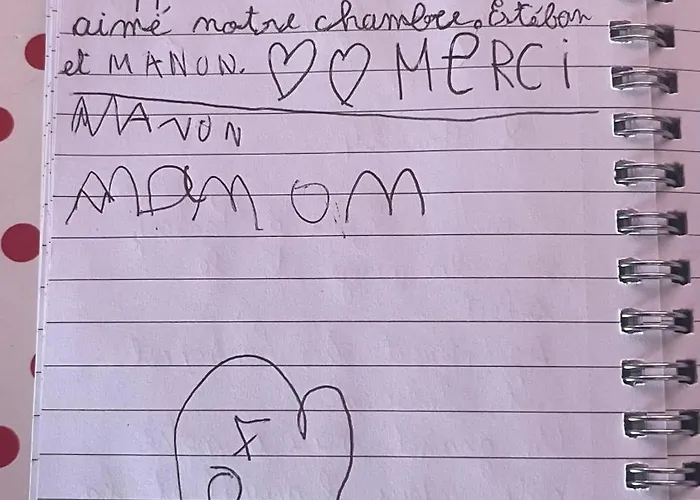 aimé notre chambre. Estéban
et MANON. ♡♡ MERCi
MANON